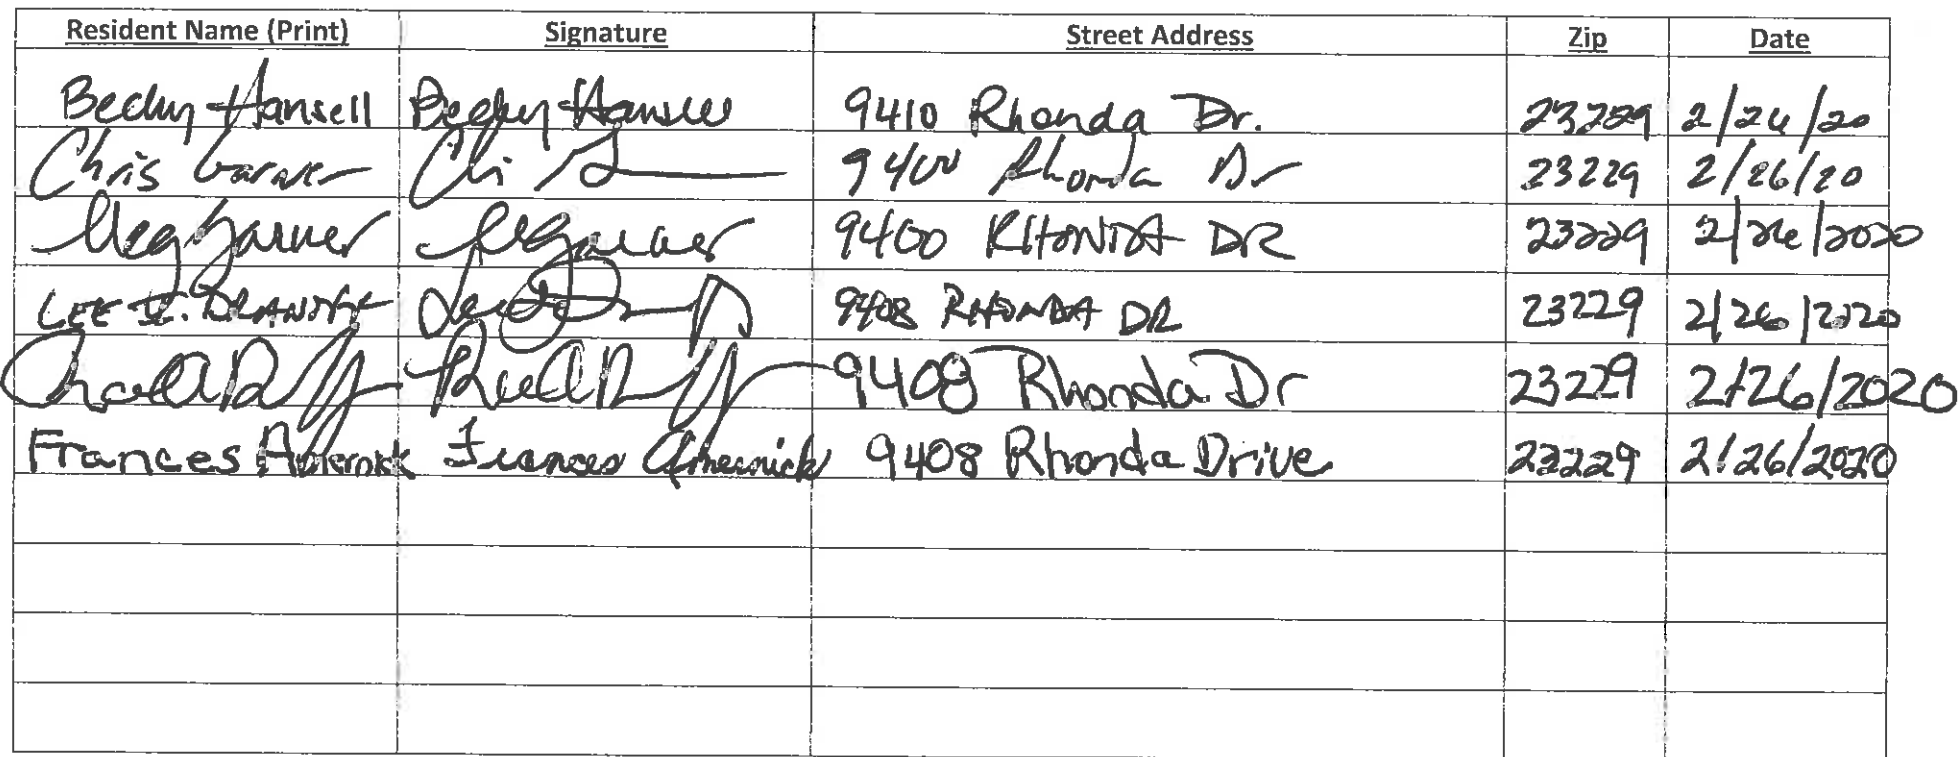 Resident Name (Print) Signature Street Address Zip Date
Becky Hansell Becky Hansell 9410 Rhonda Dr. 23229 2/26/20
Chris Garner 9400 Rhonda Dr 23229 2/26/20
Meg Garner Garner 9400 RHONDA DR 23229 2/26/2020
LEE 9408 RHONDA DR 23229 2/26/2020
9408 Rhonda Dr 23229 2/26/2020
Frances Frances 9408 Rhonda Drive 23229 2/26/2020